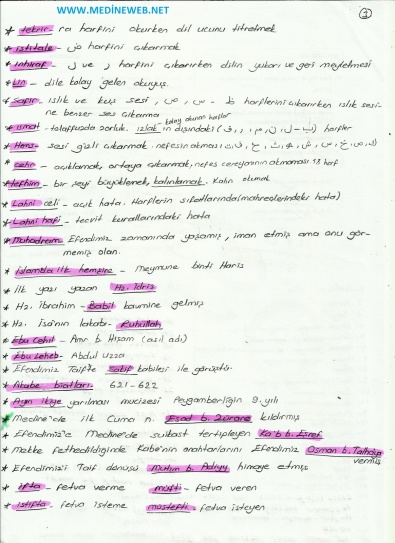 WWW.MEDİNEWEB.NET
①
* tekrir - ra harfini okurken dil ucunu titretmek
* istitale - ض harfini çıkarmak
* inhiraf - ل ve ر harfini çıkarırken dilin yukarı ve geri meyletmesi
* Lin - dile kolay gelen okuyuş.
* Safir - ıslık ve kuş sesi, ص, س, ز harflerini çıkarırken ıslık sesi-
ne benzer ses çıkarma
kolay okunan harfler
* ismat - telaffuzda zorluk. izlak ın dışındaki (ب, ل, ن, م, ر, ف) harfler
* Hems - sesi gizli çıkarmak. nefesin akması
* cehr - açıklamak, ortaya çıkarmak, nefes cereyanının akmaması 18 harf
* tefhim - bir şeyi büyüklemek, kalınlamak. Kalın okumak
* Lahni celi - açık hata. Harflerin sıfatlarında (mahreclerindeki hata)
* Lahni hafi - tecvit kurallarındaki hata
* Muhadram Efendimiz zamanında yaşamış, iman etmiş ama onu gör-
memiş olan.
* islamda ilk hemşire - Meymune binti Haris
* ilk yazı yazan Hz. İdris
* Hz. İbrahim - Babil kavmine gelmiş
* Hz. İsa'nın lakabı - Ruhullah
* Ebu Cehil - Amr b. Hişam (asıl adı)
* Ebu Leheb - Abdul Uzza
* Efendimiz Taif'te Sakif kabilesi ile görüştü.
* Akabe biatları. 621-622
* Ayın ikiye yarılması mucizesi Peygamberliğin 9. yılı
* Medine'de ilk Cuma n. Esad b. Zürare kıldırmış
* Efendimiz'e Medine'de suikast tertipleyen Ka'b b. Eşref
* Mekke fethedildiğinde Kabe'nin anahtarlarını Efendimiz Osman b. Talhaya
vermiş
* Efendimizi Taif dönüşü Mutim b. Adiyy himaye etmiş
* ifta - fetva verme müfti - fetva veren
* istifta - fetva isteme müstefti - fetva isteyen